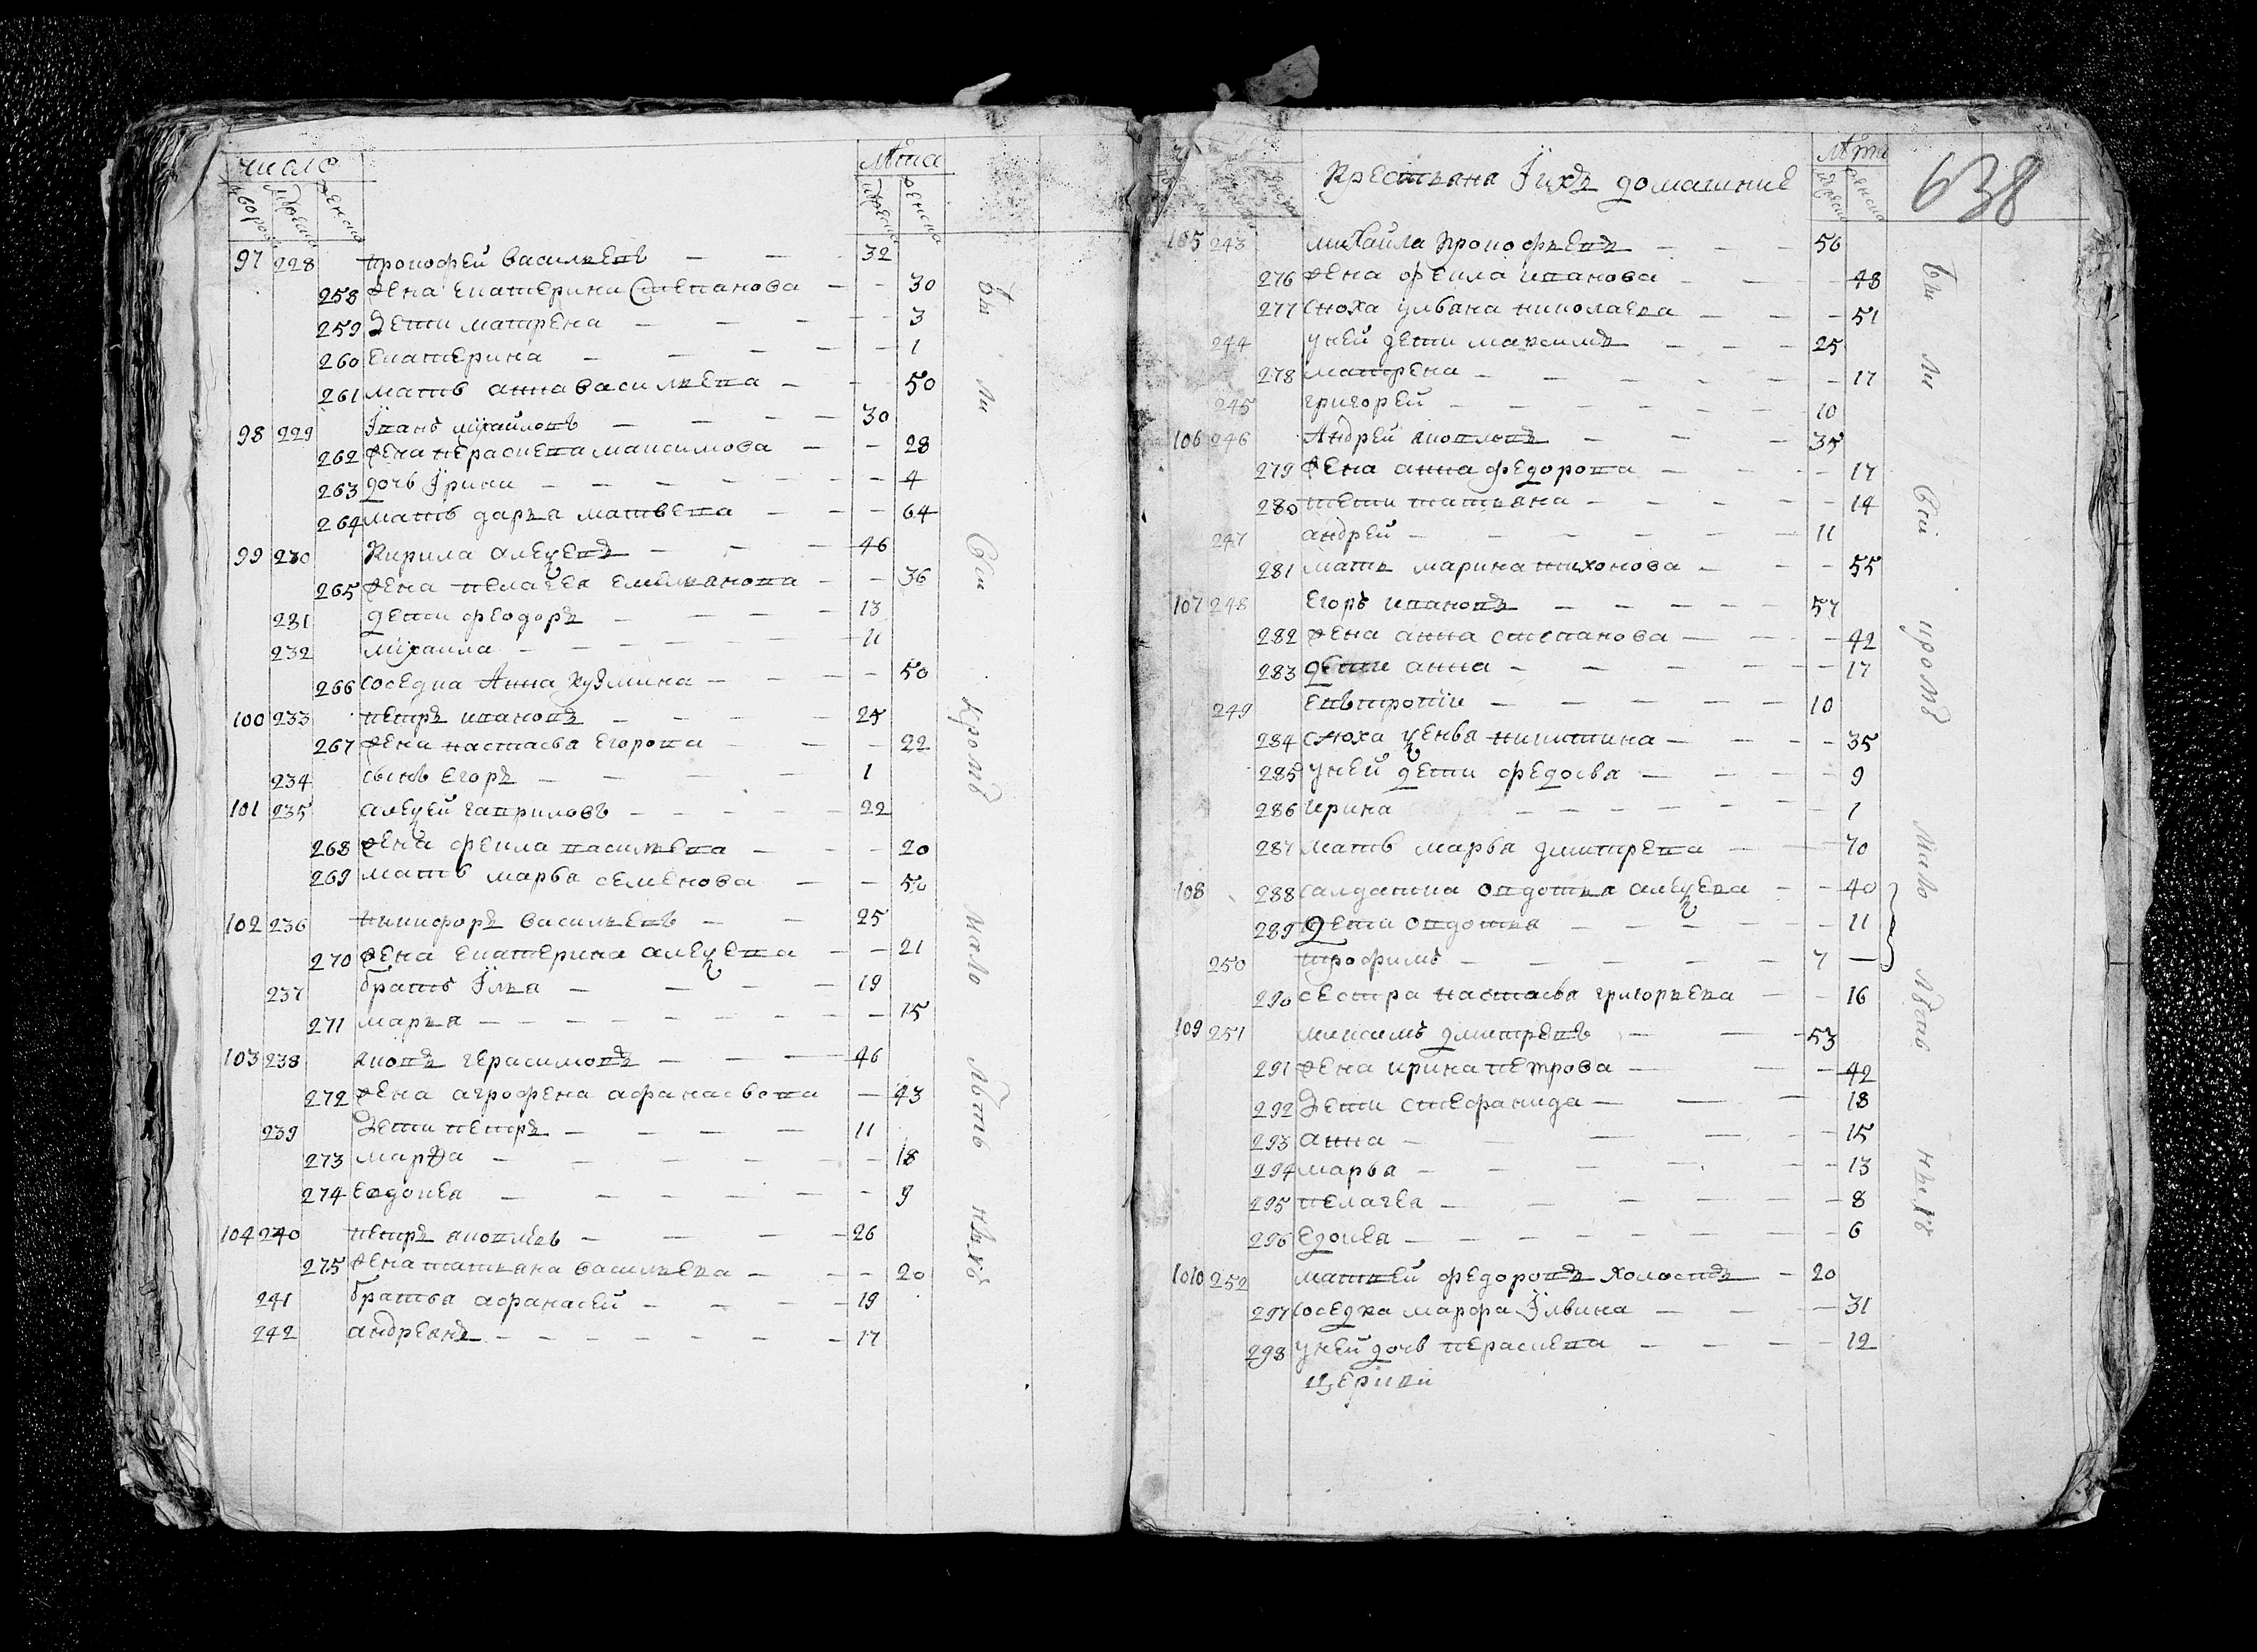 число
лѣта
дворовъ
мужеска
женска
мужеска
женска
97 228 прокофей васильевъ 32
258 жена екатерина степанова 30
259 дети матрена 3
260 екатерина 1
261 мать анна васильева 50
98 229 Їванъ михайловъ 30
262 жена параскева максимова 28
263 дочь Їрина 4
264 мать дарья матвева 64
99 230 Кирила алеѯевъ 46
265 жена пелагея емельянова 36
231 дети феодоръ 13
232 михаила 11
266 соседка Анна кузмина 50
100 233 петръ ивановъ 25
267 жена настасья егорова 22
234 сынъ егоръ 1
101 235 алеѯей гавриловъ 22
268 жена фекла васильева 20
269 мать марья семенова 50
102 236 никифоръ васильевъ 25
270 жена екатерина алеѯева 21
237 братъ Їлья 19
271 марья 15
103 238 яковъ герасимовъ 46
272 жена агрофена афанасьева 43
239 дети петръ 11
273 марѳа 18
274 евдокея 9
104 240 петръ яковлевъ 26
275 жена татьяна васильева 20
241 братья афанасей 19
242 андреянъ 17
Бы ли Вси кромѣ мало лѣтъ нѣхъ
Крестьяна Їихъ домашние
лѣта
мужеска
женска
638
105 243 михайла прокофьевъ 56
276 жена фекла иванова 48
277 сноха ульяна николаева 51
244 у ней дети максимъ 25
278 матрена 17
245 григорей 10
106 246 Андрей яковлевъ 35
279 жена анна федорова 17
280 дети татьяна 14
247 андрей 11
281 мать марина тихонова 55
107 248 егоръ ивановъ 57
282 жена анна степанова 42
283 дети анна 17
249 евтропий 10
284 сноха ѯенья никитина 35
285 у ней дети федосья 9
286 ирина 1
287 мать марья дмитрева 70
108 288 салдатка овдотья алеѯева 40
289 Дети овдотья 11
250 трофимъ 7
290 сестра настасья григорьева 16
109 251 максимъ дмитревъ 53
291 жена ирина петрова 42
292 дети стефанида 18
293 анна 15
294 марья 13
295 пелагея 8
296 едокея 6
1010 252 матвей федоровъ холостъ 20
297 соседка марфа Їльина 31
298 у ней дочь параскева 12
церкви
Бы ли Вси кромѣ мало лѣтъ нѣхъ